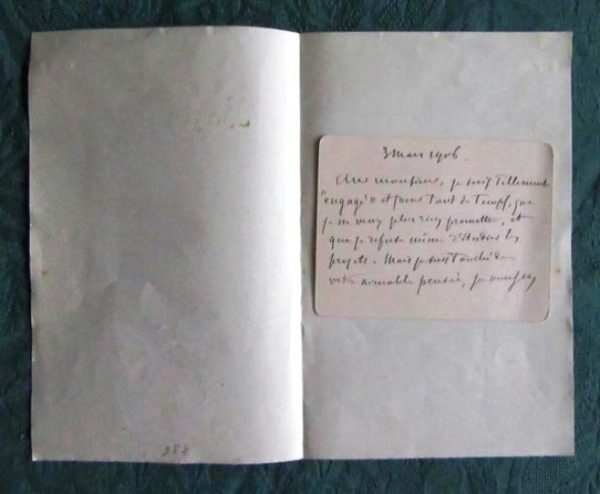 3 Mars 1906.
Cher monsieur, je suis tellement
"engagé" et pour tant de temps, que
je ne veux plus rien promettre, et
que je refuse même d'étudier les
projets. Mais je suis touché de
votre aimable pensée, je vous
287